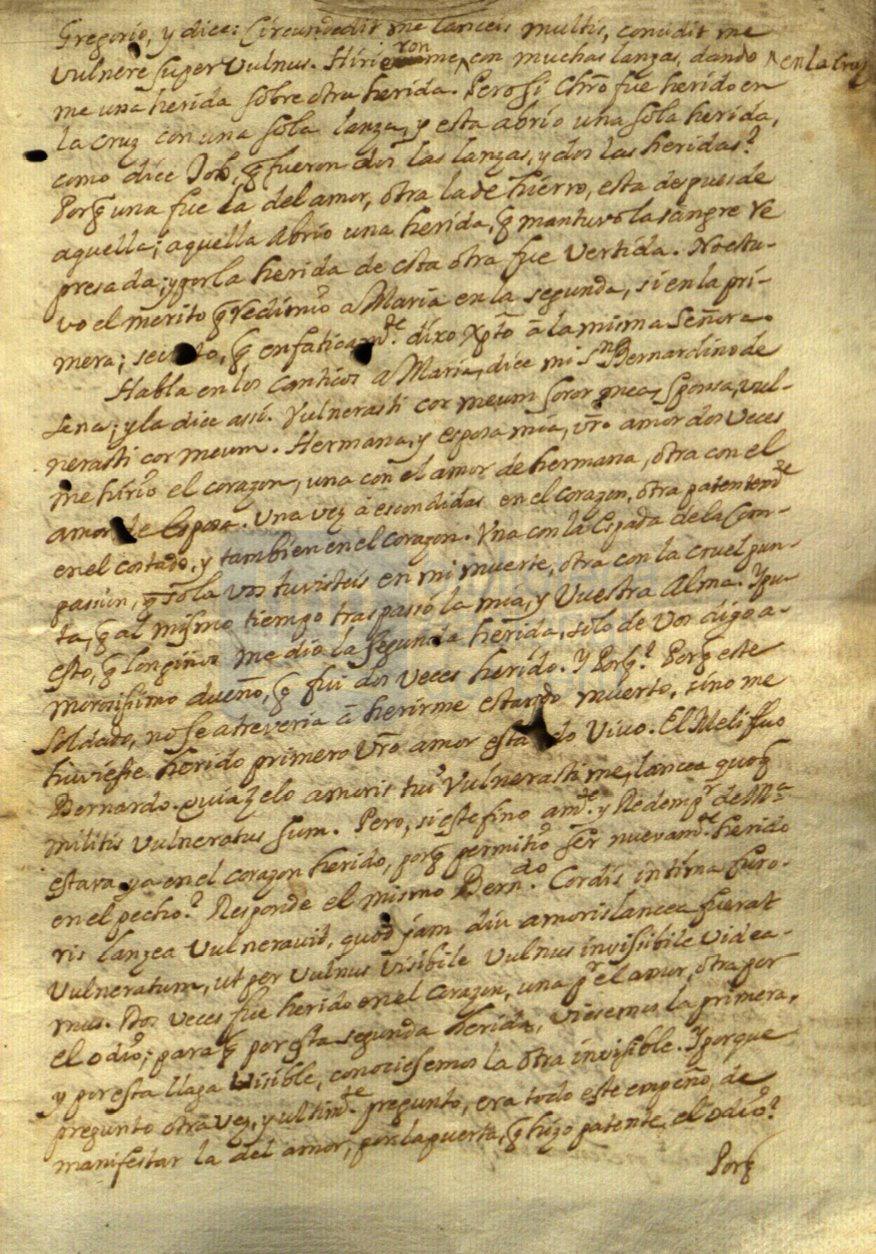 Gregorio, y dice: Circundedit me lanceis multis, concidit me
vulnere super vulnus. Hirieronme, ^ con muchas lanzas, dando ^ en la Cruz
me una herida sobre otra herida. Pero si Chr̃o fue herido en
la cruz con una sola lanza, y esta abrio una sola herida,
como dice Job, q̃ fueron dos las lanzas, y dos las heridas?
Porq̃ una fue la del amor, otra la de hierro, esta despues de
aquella; aquella abrio una herida, q̃ mantuvo la sangre re
presada; y por la herida de esta otra fue vertida. No estu-
vo el merito q̃ redimio a Maria en la segunda, si en la pri-
mera; q̃ enfaticamte. dixo Xpt̃o â la misma Señora.
Habla en los Canticos a Maria, dice mi Sn Bernardino de
Sena; y la dice assi. Vulnerasti cor meum soror mea, Sponsa, vul-
nerasti cor meum. Hermana, y esposa mia, vr̃o amor dos veces
me hirio el corazon, una con el amor de hermana, otra con el
amor de Esposa. Una vez â escondidas en el corazon, otra patentemte
en el costado, y tambien en el corazon. Vna con la Espada de la Com-
passion, q̃ sola vos tuvisteis en mi muerte, otra con la cruel pun-
ta, q̃ al mismo tiempo traspassó la mia, y Vuestra Alma. Ypu-
esto, q̃ Longinos me dio la segunda herida, solo de Vos digo a-
morosissimo dueño, q̃ fui dos veces herido. Y Porq̃? Porq̃ este
soldado, no se atreveria â herirme estando muerto, sino me
huviesse herido primero vr̃o amor estando vivo. El Melifluo
Bernardo. quia zelo amoris tui vulnerasti me, lancea quoq̃
militis vulneratus sum. Pero, si este fino amte. y Redempr de Ma
estava ya en el corazon herido, porq̃ permitio ser nuevamte. herido
en el pecho? Responde el mismo Berndo. Cordis intima furo-
ris lanzea vulneravit, quod jam diu amoris lancea fuerat
vulneratum, ut per vulnus visibile vulnus invissibile videa-
mus. Dos veces fue herido en el corazon, una pr el amor, otra por
el odio; para q̃ por esta segunda herida, viesemos la primera,
y por esta llaga visible, conociesemos la otra invisible. Yporque
pregunto otra vez, y ultimte. pregunto, era todo este empeño, de
manifestar la del amor, por la puerta, q̃ hizo patente el odio?
Porq̃